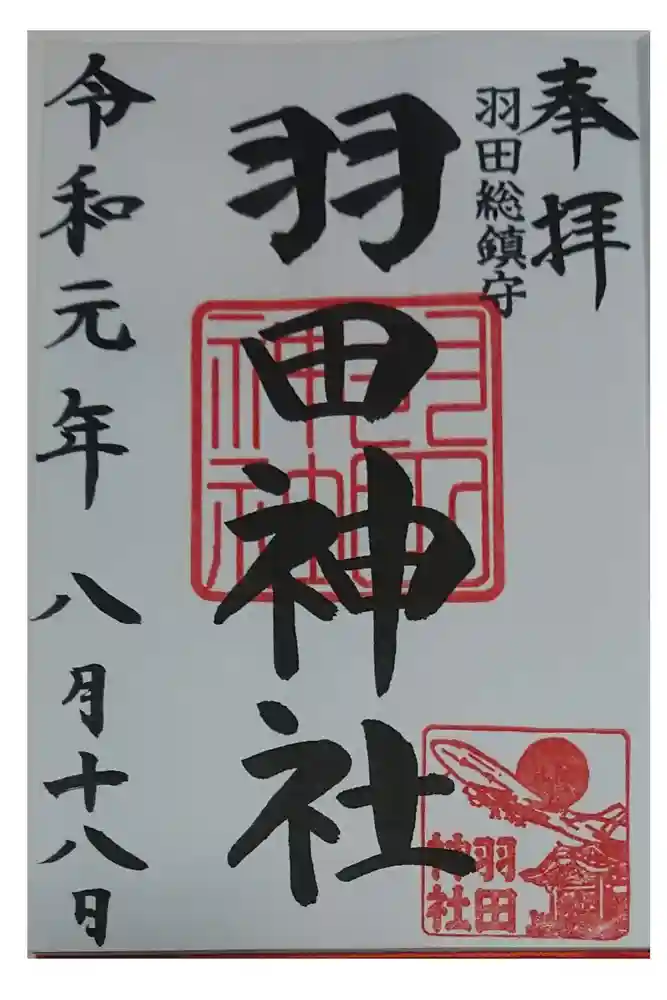 奉拝
羽田総鎮守
羽田神社
羽田
神社
羽田
神社
令和元年八月十八日